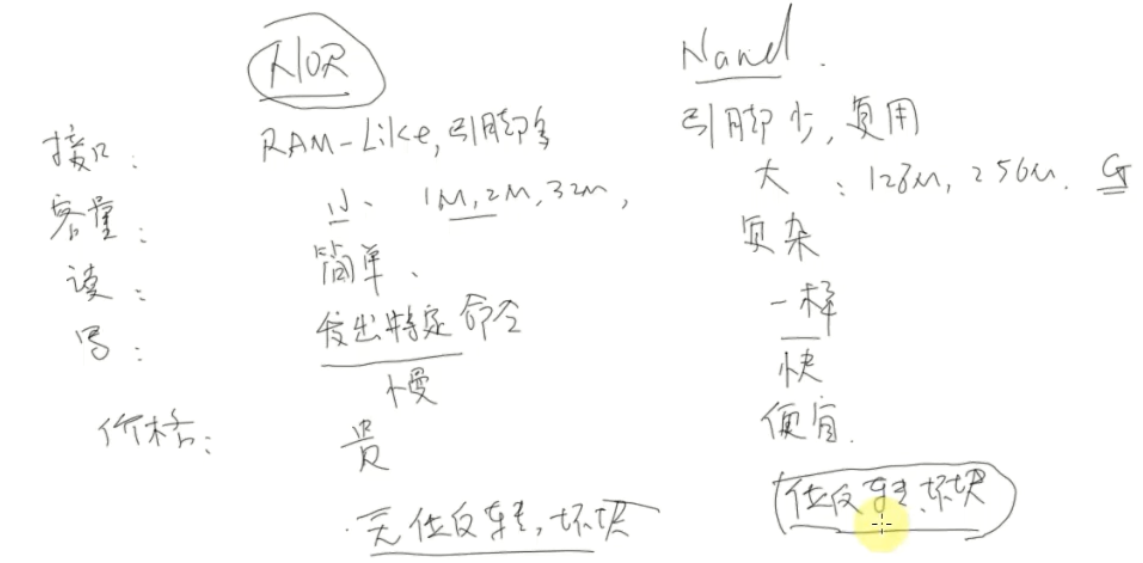 NOR Nand.
接口: RAM-Like,引脚多 引脚少,复用
容量: 小、 1M,2M,32M, 大 : 128M, 256M. G
读: 简单、 复杂
写: 发出特定命令 一样
慢 快
价格: 贵 便宜.
·无位反转,坏块 位反转、坏块